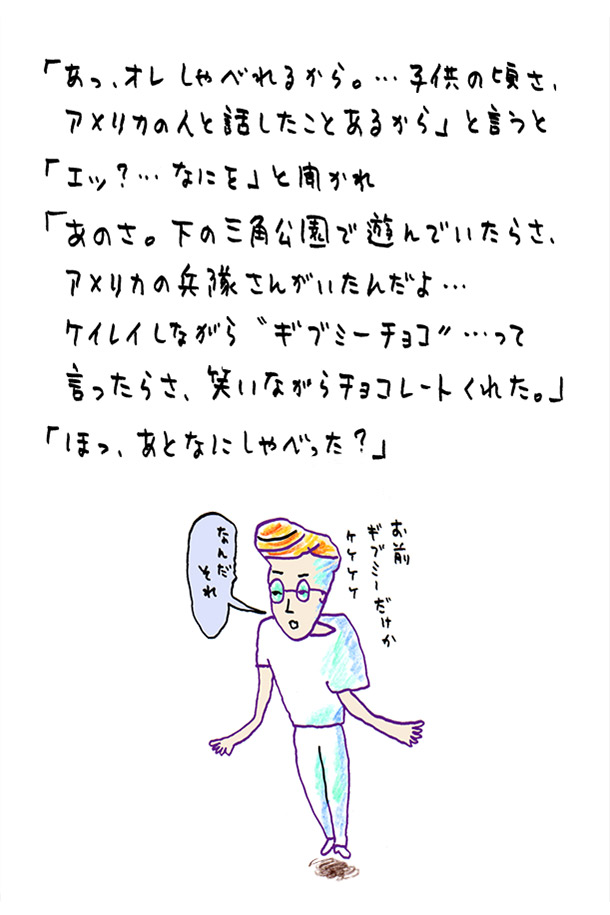 「あっ、オレ しゃべれるから。…子供の頃さ、
アメリカの人と話したことあるから」と言うと
「エッ？…なにを」と聞かれ
「あのさ。下の三角公園で遊んでいたらさ、
アメリカの兵隊さんがいたんだよ…
ケイレイしながら〝ギブミーチョコ〟…って
言ったらさ、笑いながらチョコレートくれた。」
「ほっ、あとなにしゃべった？」
お前
ギブミーだけか
ケケケケ
なんだ
それ